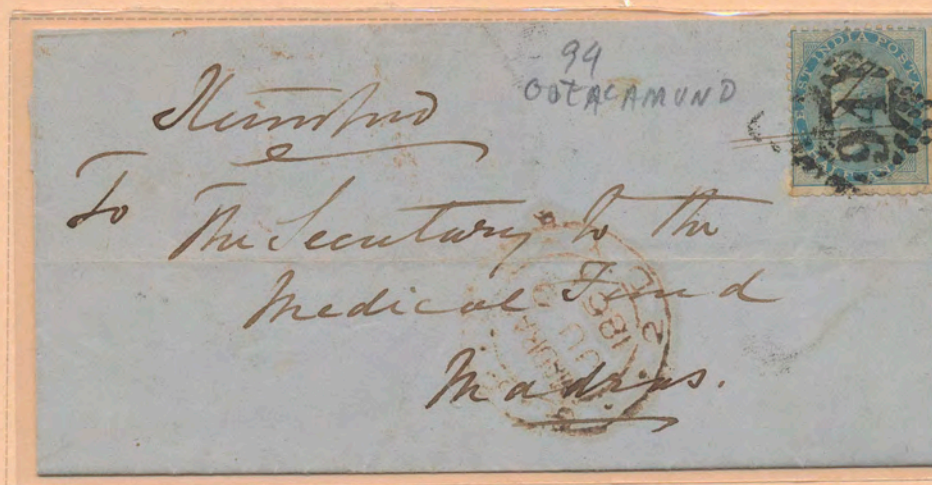 - 94
OOTACAMUND
EAST INDIA POSTAGE
94
To
The Secretary to the
Medical Fund
Madras.
186